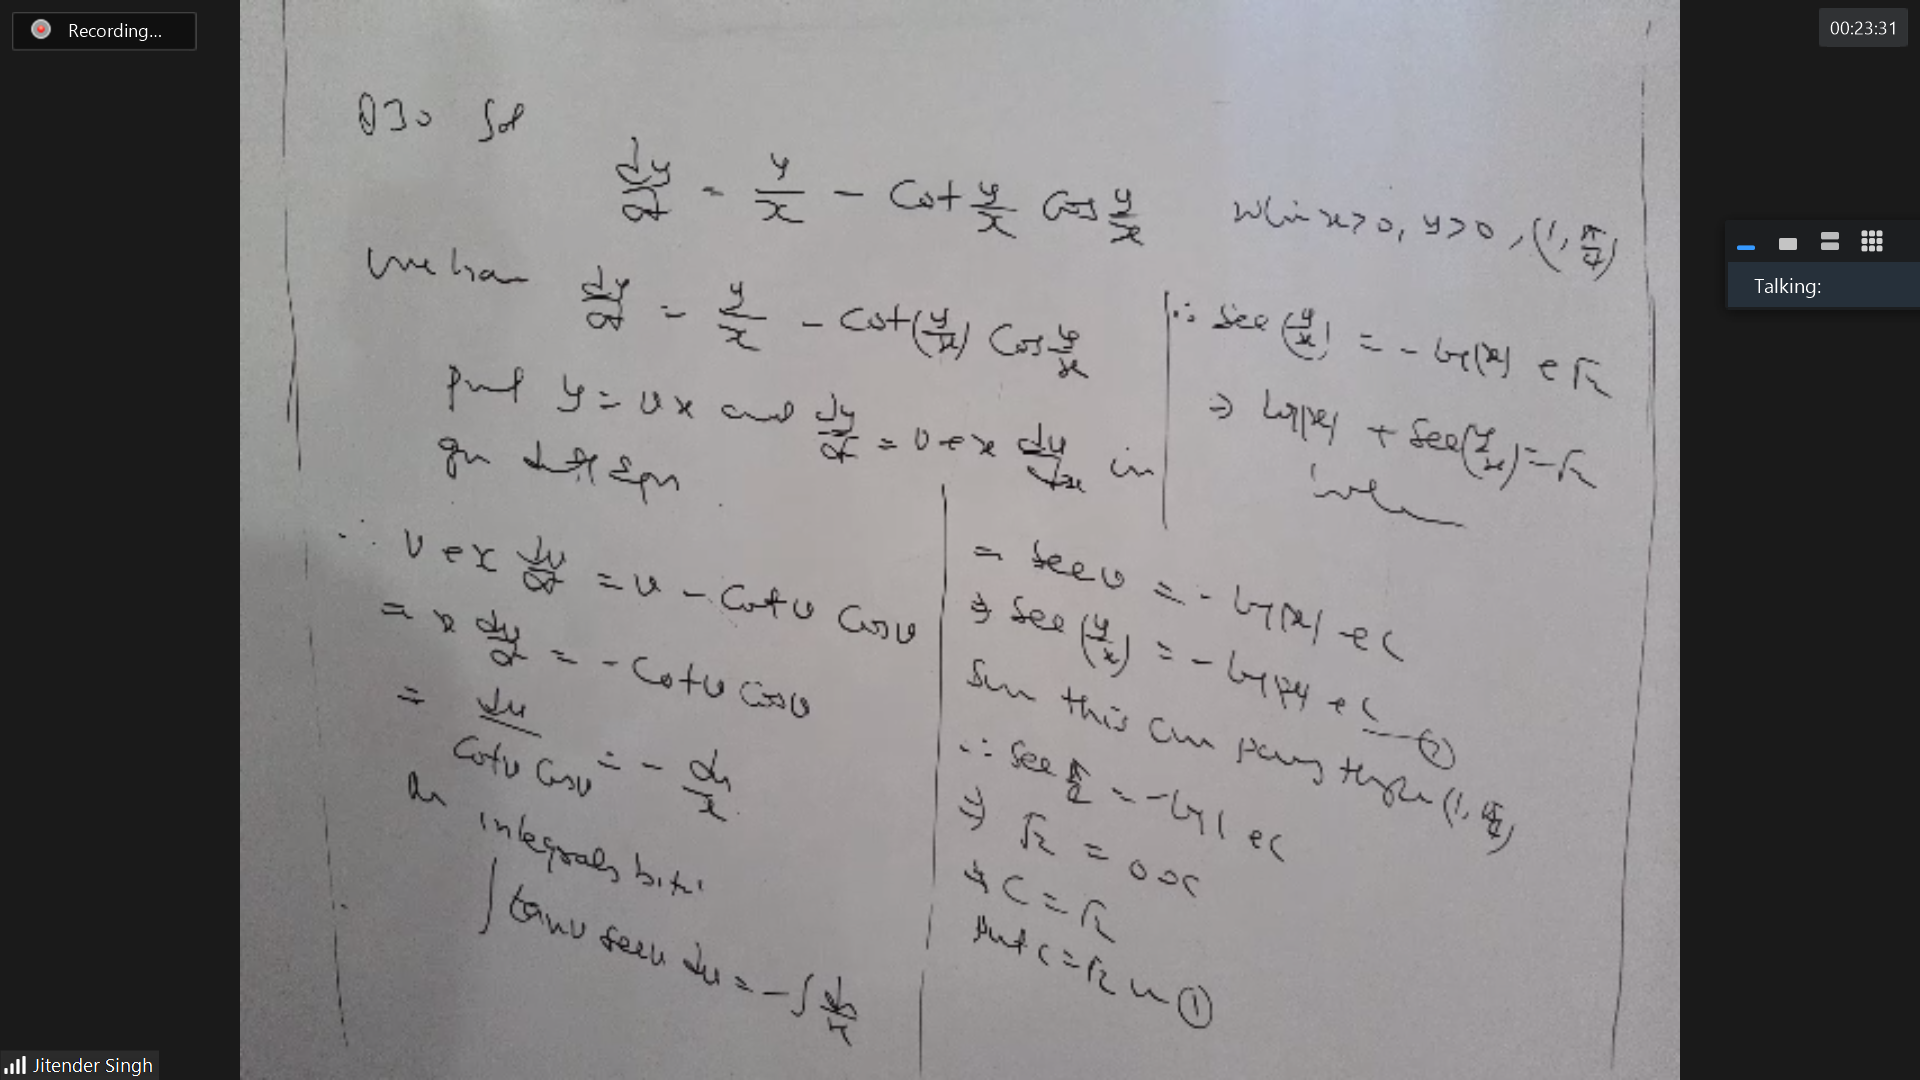 Recording...
00:23:31
Talking:
Q30 Sol
dy/dx = y/x - Cot y/x Cos y/x when x>0, y>0, (1, π/4)
we have dy/dx = y/x - Cot(y/x) Cos y/x
put y = vx and dy/dx = v + x dv/dx in
gn diff Eqn
∴ v + x dv/dx = v - Cot v Cos v
= x dv/dx = - Cot v Cos v
= dv/Cot v Cos v = - dx/x
integrals
∫ tan v sec v dv = - ∫ dx/x
= Sec v = - log|x| + C
⇒ Sec (y/x) = - log|x| + C
this passes through (1, π/4)
∴ Sec π/4 = - log 1 + C
⇒ √2 = 0 + C
⇒ C = √2
Put C = √2 in ①
∴ Sec (y/x) = - log|x| + √2
⇒ log|x| + Sec(y/x) = √2
Jitender Singh